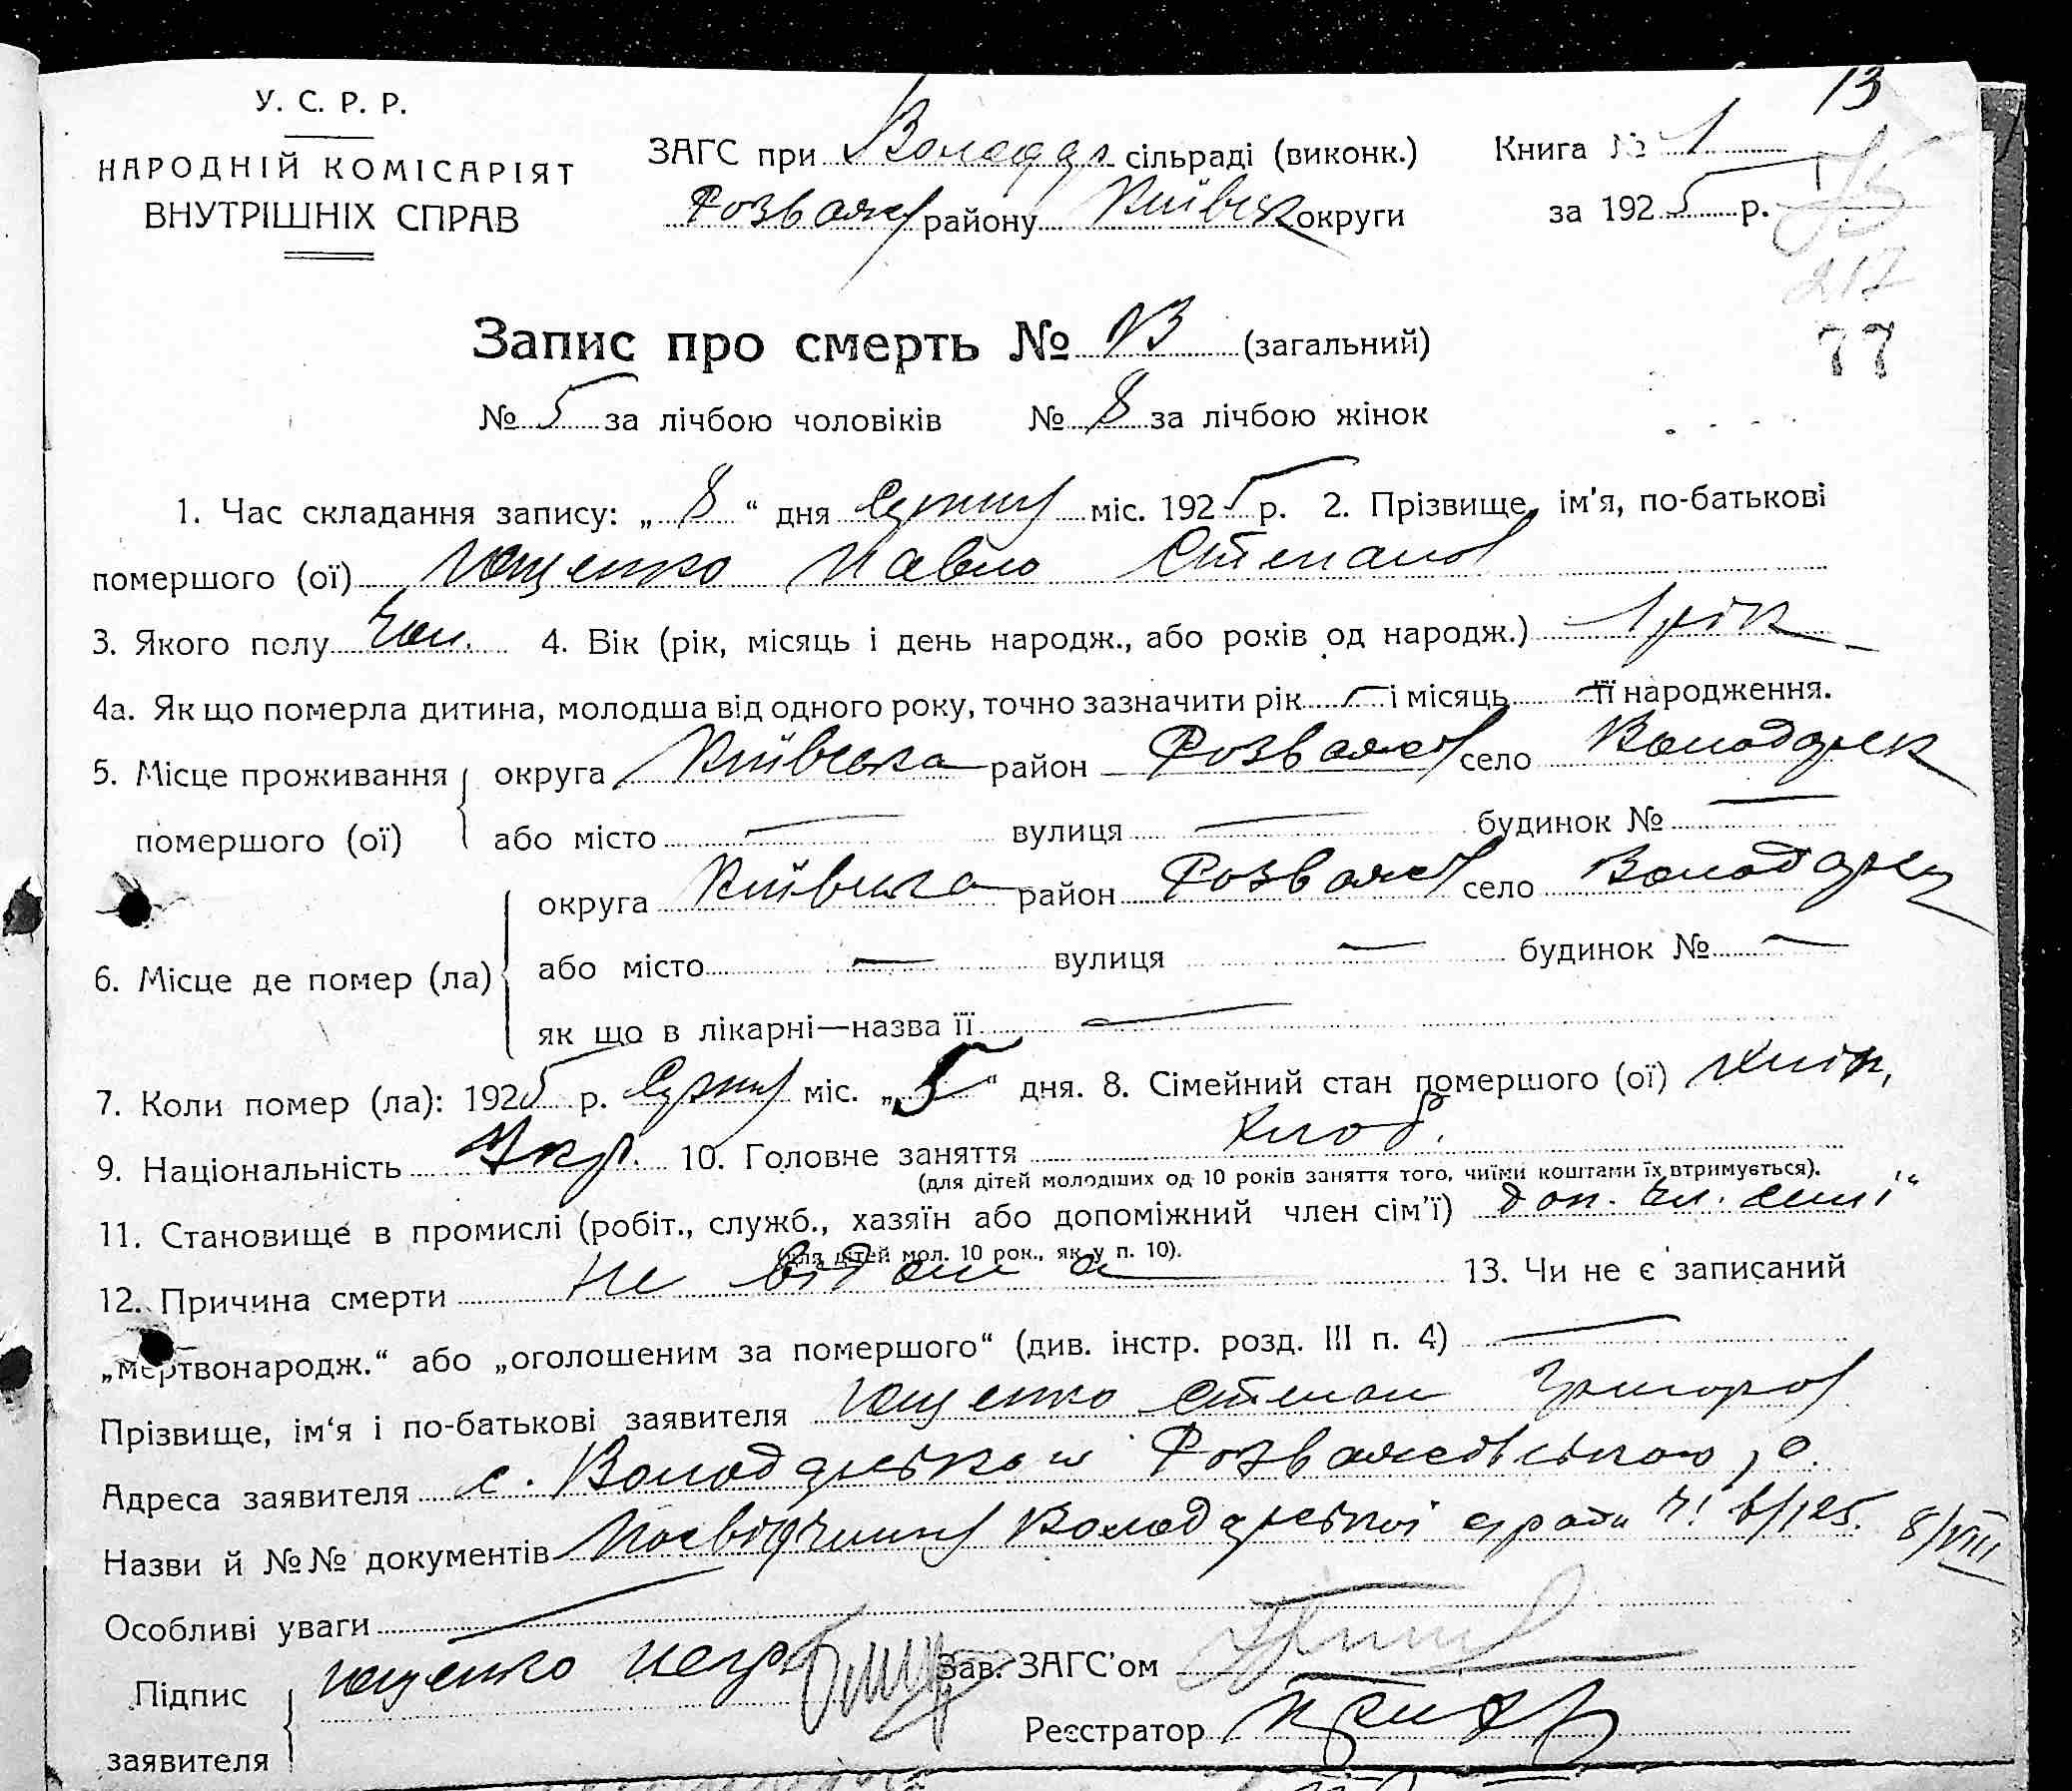 13
У. С. Р. Р.
НАРОДНІЙ КОМІСАРІЯТ
ВНУТРІШНІХ СПРАВ
ЗАГС при Володар сільраді (виконк.)
Розваж району Київськ округи
Книга № 1
за 1925 р.
217
77
Запис про смерть № 13 (загальний)
№ 5 за лічбою чоловіків № 8 за лічбою жінок
1. Час складання запису: „ 8 “ дня Серпня міс. 1925 р. 2. Прізвище, ім'я, по-батькові
помершого (ої) Ющенко Павло Степанов
3. Якого полу Чол. 4. Вік (рік, місяць і день народж., або років од народж.) 1 рік
4а. Як що померла дитина, молодша від одного року, точно зазначити рік — і місяць — її народження.
5. Місце проживання помершого (ої) округа Київська район Розважів село
або місто — вулиця — будинок № —
6. Місце де помер (ла) округа Київська район Розважів село
або місто — вулиця — будинок № —
як що в лікарні—назва її —
7. Коли помер (ла): 1925 р. Серпня міс. „ 5 “ дня. 8. Сімейний стан помершого (ої)
9. Національність Укр. 10. Головне заняття Хліб.
(для дітей молодших од 10 років заняття того, чиїми коштами їх втримується).
11. Становище в промислі (робіт., служб., хазяїн або допоміжний член сім'ї) доп. чл. сімї
(для дітей мол. 10 рок., як у п. 10).
12. Причина смерти Не відома 13. Чи не є записаний
„мертвонародж.“ або „оголошеним за помершого“ (див. інстр. розд. III п. 4) —
Прізвище, ім'я і по-батькові заявителя Ющенко Степан Григоров
Адреса заявителя с. Розважівського р.
Назви й №№ документів Посвідчення сради 8/VIII
Особливі уваги —
Підпис заявителя Ющенко негр
Зав. ЗАГС'ом
Реєстратор